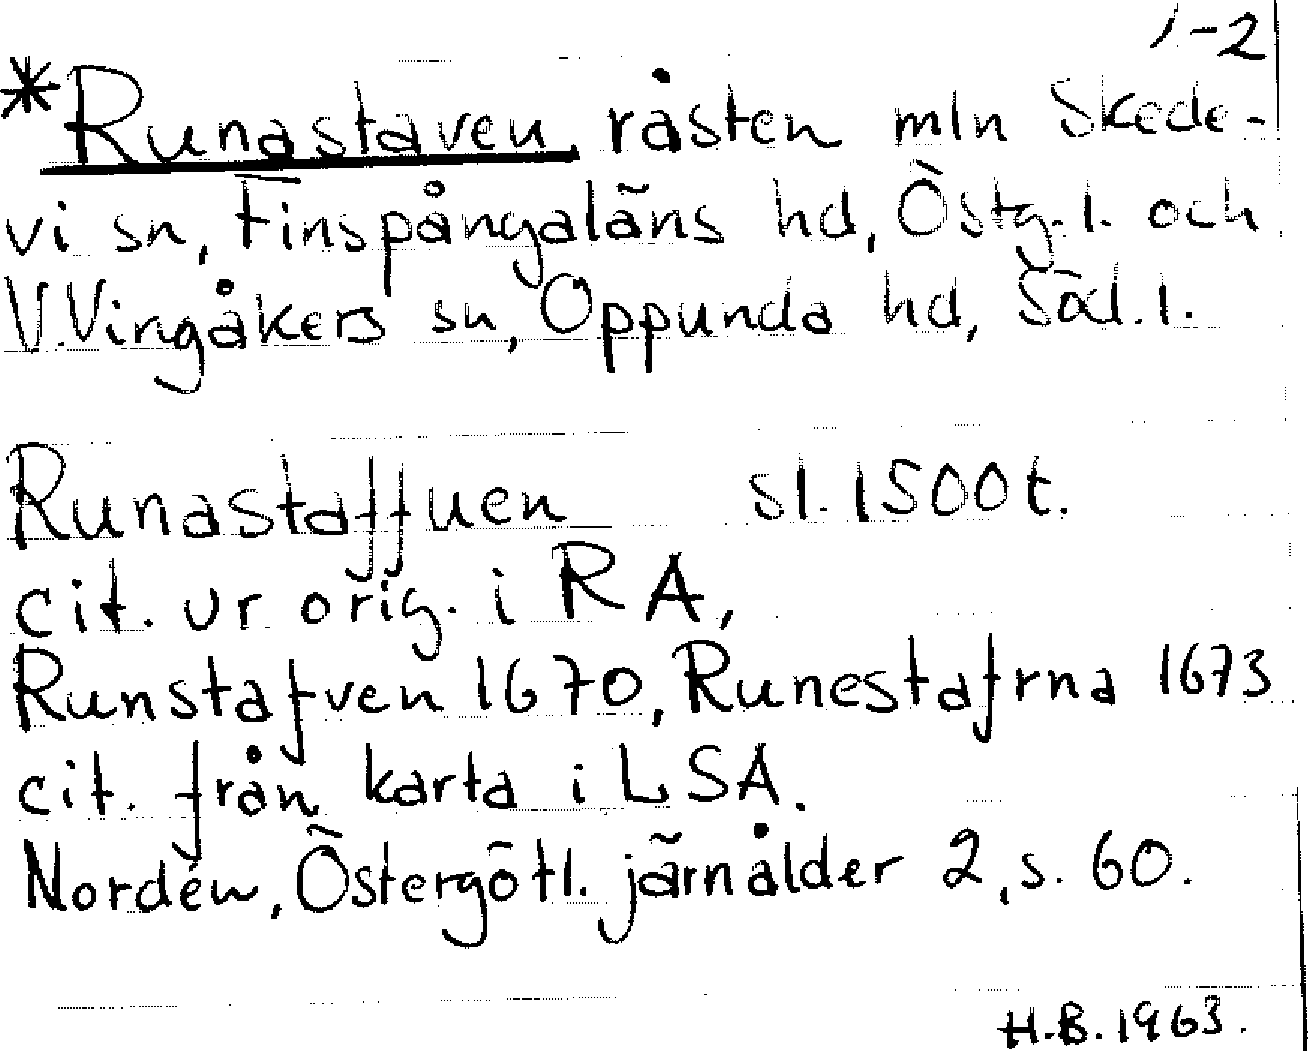 1-2
*Runastaven, råsten mln Skede-
vi sn, Finspångaläns hd, Östg.l. och
V.Vingåkers sn, Oppunda hd, Söd.l.
Runastaffuen sl. 1500t.
cit. ur orig. i RA,
Runstafven 1670, Runestafrna 1673
cit. från karta i LSA.
Nordén, Östergötl. järnålder 2, s. 60.
H.B. 1963.